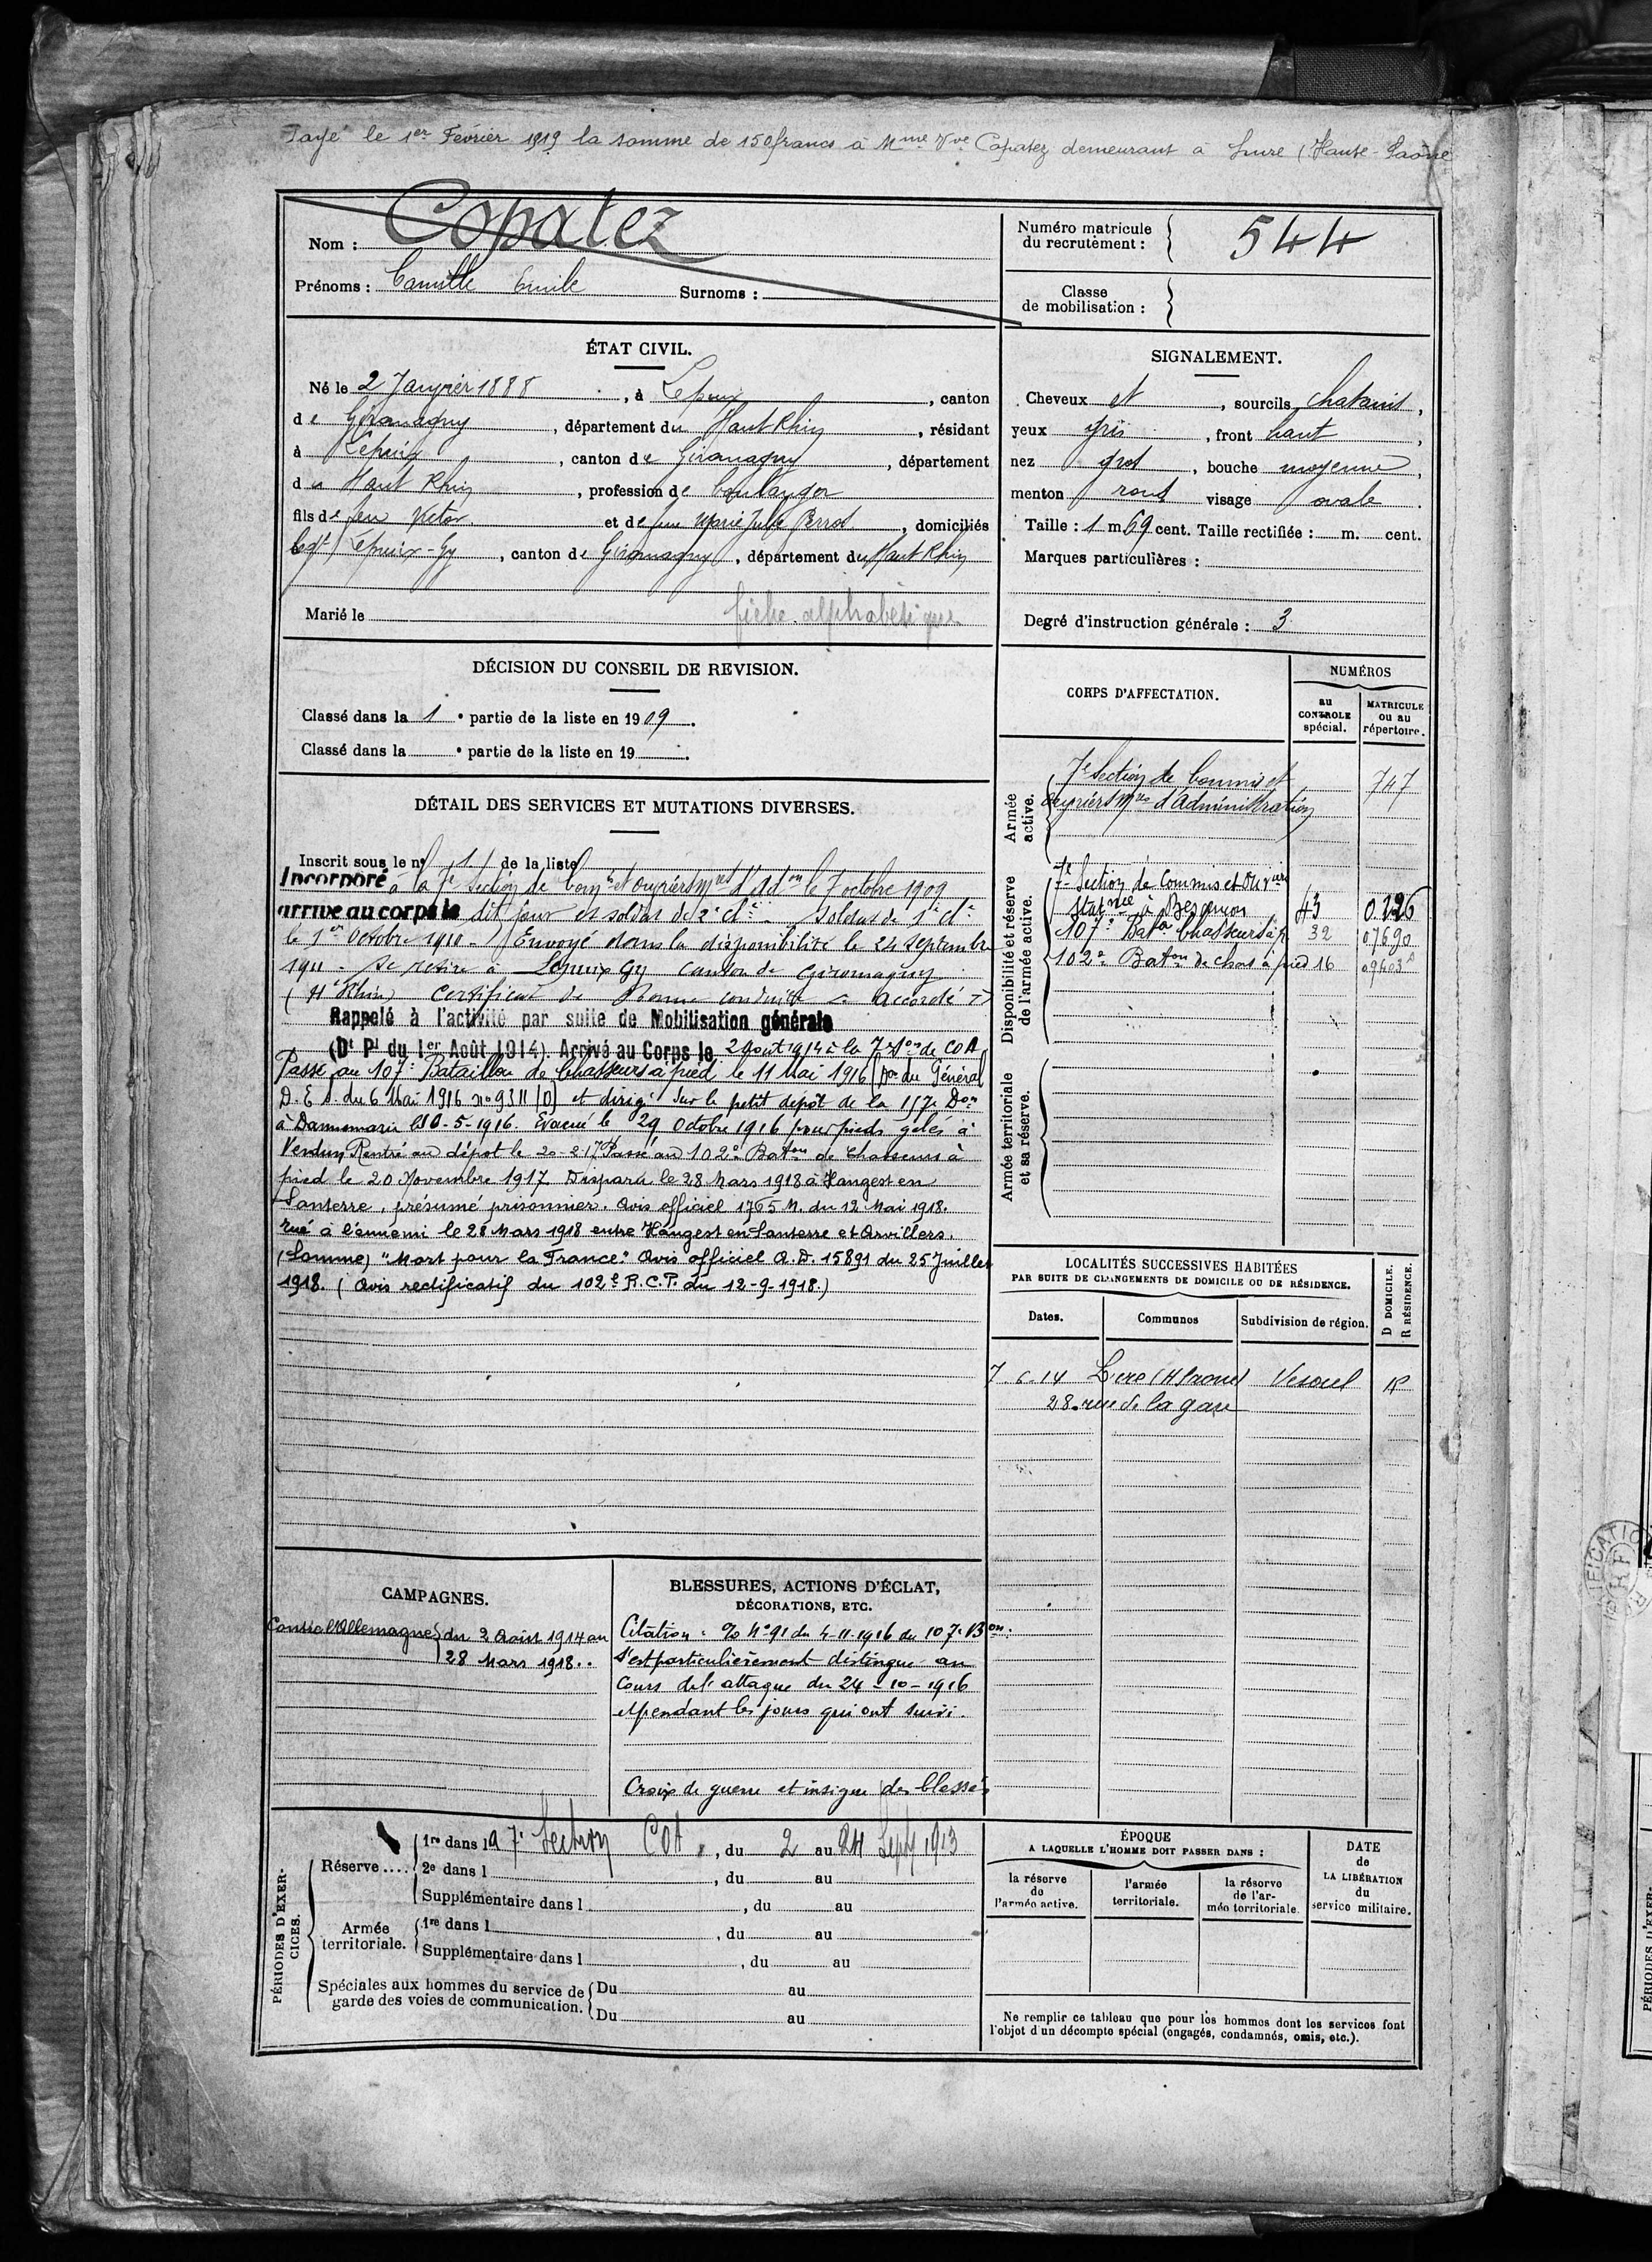 Payé le 1er Février 1919 la somme de 150 francs à Mme Vve Copatez demeurant à Lure (Haute-Saône
Nom : Copatez
Prénoms : Camille Emile Surnoms :
Numéro matricule du recrutement : 544
Classe de mobilisation :
ÉTAT CIVIL.
Né le 2 Janvier 1888, à Lepuix, canton
de Giromagny, département du Haut Rhin, résidant
à Lepuix, canton de Giromagny, département
du Haut Rhin, profession de boulanger
fils de feu Victor et de feue Marie Julie Perrot, domiciliés
Lepuix-Gy, canton de Giromagny, département du Haut Rhin
Marié le
fiche alphabétique
SIGNALEMENT.
Cheveux et, sourcils chatains,
yeux gris, front haut,
nez gros, bouche moyenne,
menton rond visage ovale.
Taille : 1 m 69 cent. Taille rectifiée : m. cent.
Marques particulières :
Degré d'instruction générale : 3
DÉCISION DU CONSEIL DE REVISION.
Classé dans la 1e partie de la liste en 1909.
Classé dans la e partie de la liste en 19 .
DÉTAIL DES SERVICES ET MUTATIONS DIVERSES.
Inscrit sous le no 1 de la liste
Incorporé à la 7e Section de Comis et ouvriers mres d'Adon le 7 octobre 1909
arrivé au corps le dit jour et soldat de 2e cl. Soldat de 1e cl.
le 1er Octobre 1910 - Envoyé dans la disponibilité le 24 septembre
1911. Se retire à Lepuix Gy canton de Giromagny
(Ht Rhin) Certificat de Bonne conduite accordé
Rappelé à l'activité par suite de Mobilisation générale
(Dt Pl du 1er Août 1914). Arrivé au Corps le 2 Aout 1914 à la 7e Son de COA
Passé au 107e Bataillon de Chasseurs à pied le 11 Mai 1916 (Don du Général
D.E.S. du 6 Mai 1916 no 9311 (0) et dirigé sur le petit depôt de la 157e Don
à Dannemarie le 10-5-1916. Evacué le 29 Octobre 1916 pour pieds gelés à
Verdun Rentré au dépot le 20-2-17 Passé au 102e Baton de chasseurs à
pied le 20 Novembre 1917 Disparu le 28 Mars 1918 à Hangest en
Santerre, présumé prisonnier. Avis officiel 1765 M. du 12 Mai 1918.
Tué à l'ennemi le 28 Mars 1918 entre Hangest en-Santerre et Arvillers.
(Somme) "Mort pour la France". Avis officiel A.D. 15891 du 25 Juillet
1918. (Avis rectificatif du 102e B.C.P. du 12-9-1918.)
CORPS D'AFFECTATION.
NUMÉROS
au CONTROLE spécial.
MATRICULE ou au répertoire.
Armée active.
7e Section de Commis et 747
Ouvriers Mres d'Administration
Disponibilité et réserve de l'armée active.
7e Section de Commis et Ouvriers
Statnée à Besançon 43 0.226
107e Baton Chasseurs à p. 32 07690
102e Baton de chas à pied 16
Armée territoriale et sa réserve.
LOCALITÉS SUCCESSIVES HABITÉES
PAR SUITE DE CHANGEMENTS DE DOMICILE OU DE RÉSIDENCE.
Dates. Communes Subdivision de région. D DOMICILE. R RÉSIDENCE.
7-6-14 Lure (H Saone) Vesoul R
28. rue de la gare
CAMPAGNES.
Contre l'Allemagne du 2 Août 1914 au
28 Mars 1918..
BLESSURES, ACTIONS D'ÉCLAT,
DÉCORATIONS, ETC.
Citation : No 91 du 4-11-1916 du 107e Bon.
S'est particulièrement distingué au
Cours de l'attaque du 24-10-1916
et pendant les jours qui ont suivi.
Croix de guerre et insigne des blessés
PÉRIODES D'EXERCICES.
Réserve....
1re dans la 7e Section COA, du 2 au 24 Sept 1913
2e dans l , du au
Supplémentaire dans l , du au
Armée territoriale.
1re dans l , du au
Supplémentaire dans l , du au
Spéciales aux hommes du service de garde des voies de communication.
Du au
Du au
ÉPOQUE
A LAQUELLE L'HOMME DOIT PASSER DANS :
la réserve de l'armée active.
l'armée territoriale.
la réserve de l'armée territoriale.
DATE de LA LIBÉRATION du service militaire.
Ne remplir ce tableau que pour les hommes dont les services font
l'objet d'un décompte spécial (engagés, condamnés, omis, etc.).